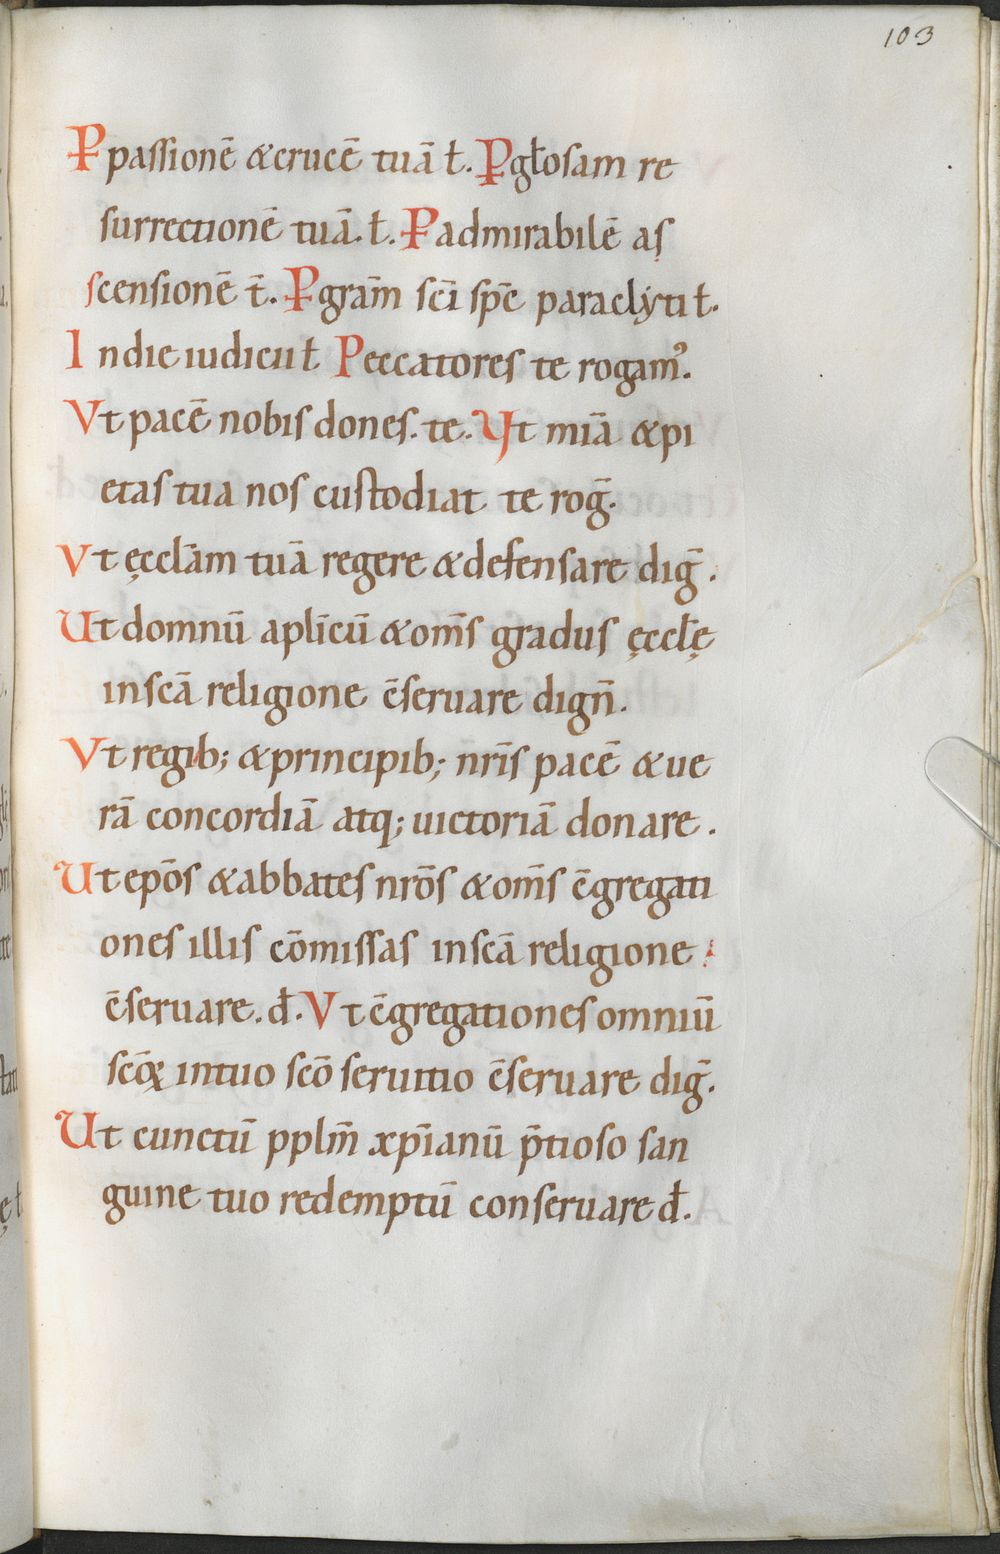 103
Ꝑ passionē &crucē tuā t̄. Ꝑ gl̄osam re
surrectionē tuā. t̄. Ꝑ admirabilē as
scensionē t̄. Ꝑ gr̄am sc̄i sp̄c paraclẏti t̄.
In die iudicii t̄ Peccatores te rogam᾽.
Vt pacē nobis dones. te. Vt mīa &pi
etas tua nos custodiat te roḡ.
Vt ęccl̄am tuā regere &defensare diḡ.
Ut domnū apl̄icū &om̄s gradus ęccl̄ę
in scā religione c̄seruare dign̄.
Vt regib; &principib; nr̄is pacē &ue
rā concordiā atq; uictoriā donare.
Ut ep̄os &abbates nr̄os &om̄s c̄gregati
ones illis cōmissas in scā religione
c̄seruare. d̄. Vt c̄gregationes omniū
scōꝝ in tuo scō seruitio c̄seruare diḡ.
Ut cunctū pplm̄ xp̄ianū p̄tioso san
guine tuo redemptū conseruare d̄.